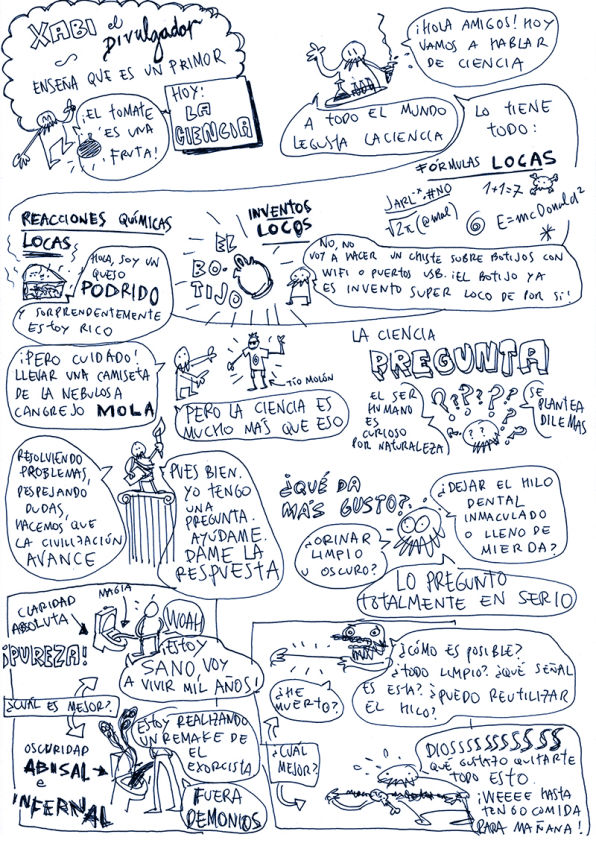 XABI el
Divulgador
ENSEÑA QUE ES UN PRIMOR
¡EL TOMATE
ES UNA
FRUTA!
HOY:
LA
CIENCIA
¡HOLA AMIGOS! HOY
VAMOS A HABLAR
DE CIENCIA
A TODO EL MUNDO
LE GUSTA LA CIENCIA
LO TIENE
TODO:
FÓRMULAS LOCAS
JARL·*·#NO
√2π(@mal)
1+1=7
E=mcDonald²
REACCIONES QUÍMICAS
LOCAS
HOLA, SOY UN
QUESO
PODRIDO
Y SORPRENDENTEMENTE
ESTOY RICO
INVENTOS
LOCOS
EL
BO-
TIJO
NO, NO
VOY A HACER UN CHISTE SOBRE BOTIJOS CON
WIFI O PUERTOS USB. ¡EL BOTIJO YA
ES INVENTO SUPER LOCO DE POR SÍ!
¡PERO CUIDADO!
LLEVAR UNA CAMISETA
DE LA NEBULOSA
CANGREJO MOLA
TÍO MOLÓN
PERO LA CIENCIA ES
MUCHO MÁS QUE ESO
LA CIENCIA
PREGUNTA
EL SER
HUMANO
ES
CURIOSO
POR NATURALEZA
? ? ? ? ? ?
SE
PLANTEA
DILEMAS
RESOLVIENDO
PROBLEMAS,
DESPEJANDO
DUDAS,
HACEMOS QUE
LA CIVILIZACIÓN
AVANCE
PUES BIEN.
YO TENGO
UNA
PREGUNTA.
AYÚDAME.
DAME LA
RESPUESTA
¿QUÉ DA
MÁS GUSTO?
¿ORINAR
LIMPIO
U OSCURO?
¿DEJAR EL HILO
DENTAL
INMACULADO
O LLENO DE
MIERDA?
LO PREGUNTO
TOTALMENTE EN SERIO
CLARIDAD
ABSOLUTA
MAGIA
WOAH
¡PUREZA!
¡ESTOY
SANO VOY
A VIVIR MIL AÑOS!
¿CUÁL ES MEJOR?
OSCURIDAD
ABISAL
e
INFERNAL
ESTOY REALIZANDO
UN REMAKE DE
EL
EXORCISTA
FUERA
DEMONIOS
¿HE
MUERTO?
¿CÓMO ES POSIBLE?
¿TODO LIMPIO? ¿QUÉ SEÑAL
ES ESTA? ¿PUEDO REUTILIZAR
EL HILO?
¿CUÁL
MEJOR?
DIOSSSSSSSSSSS
QUÉ GUSTAZO QUITARTE
TODO ESTO.
¡WEEEE HASTA
TENGO COMIDA
PARA MAÑANA!